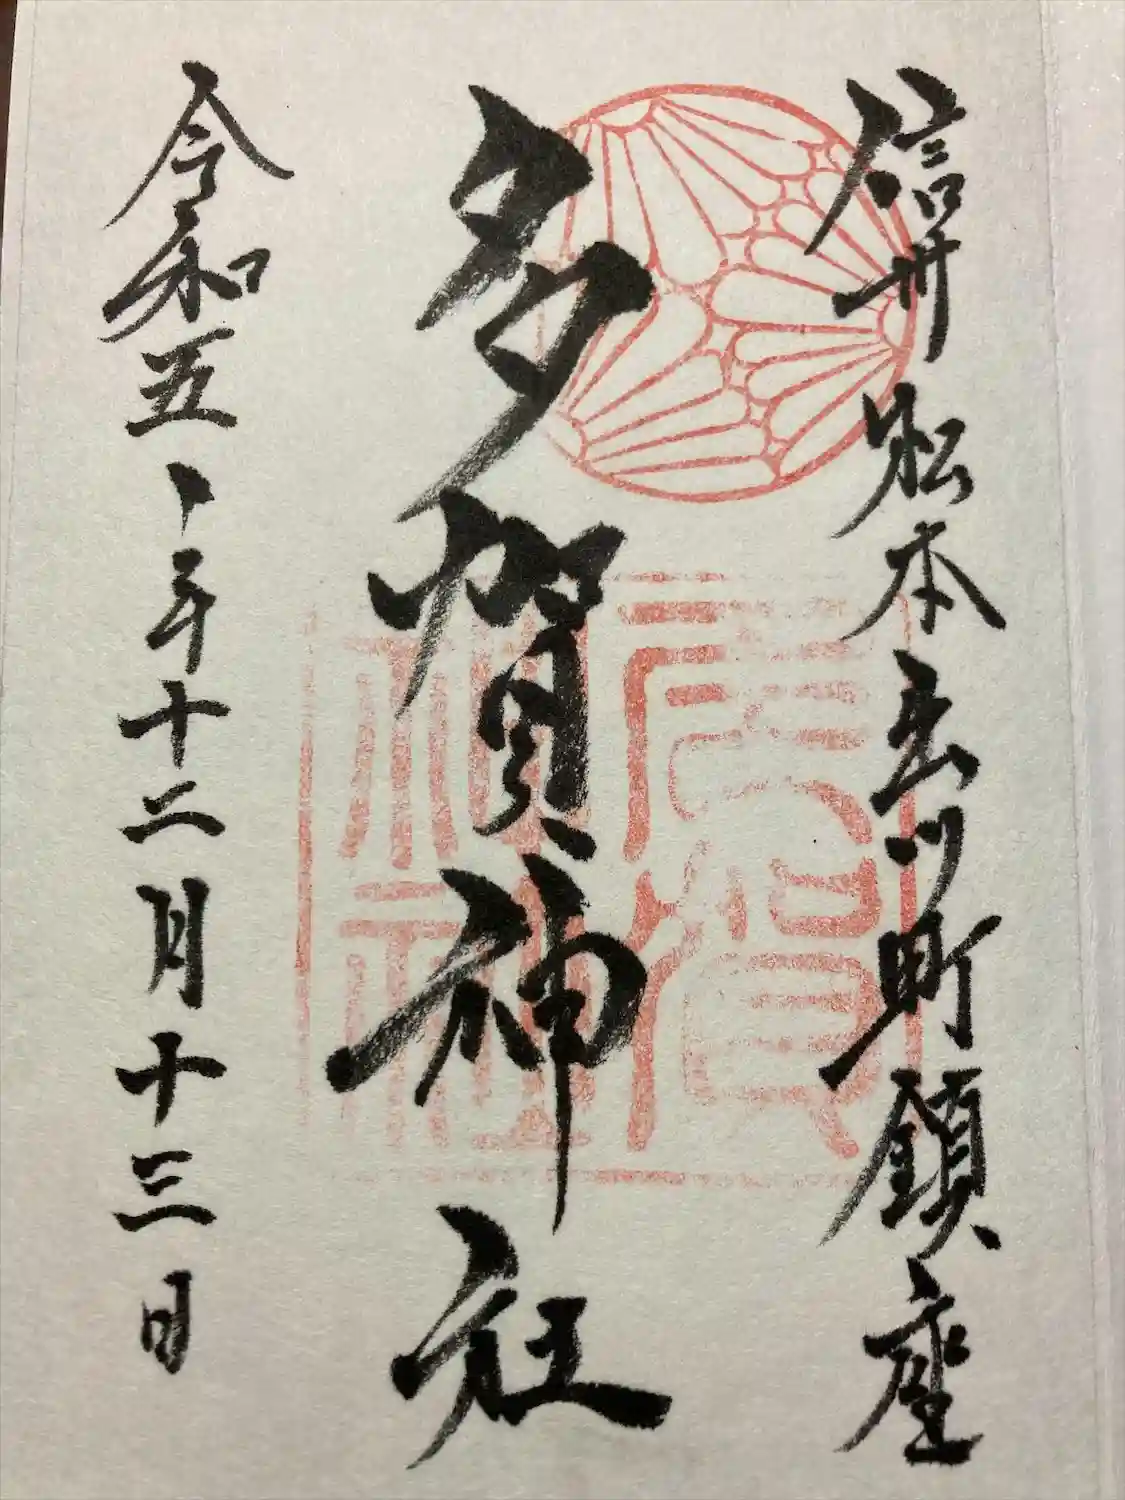 信州松本出川町鎮座
多賀神社
令和五年十二月十三日